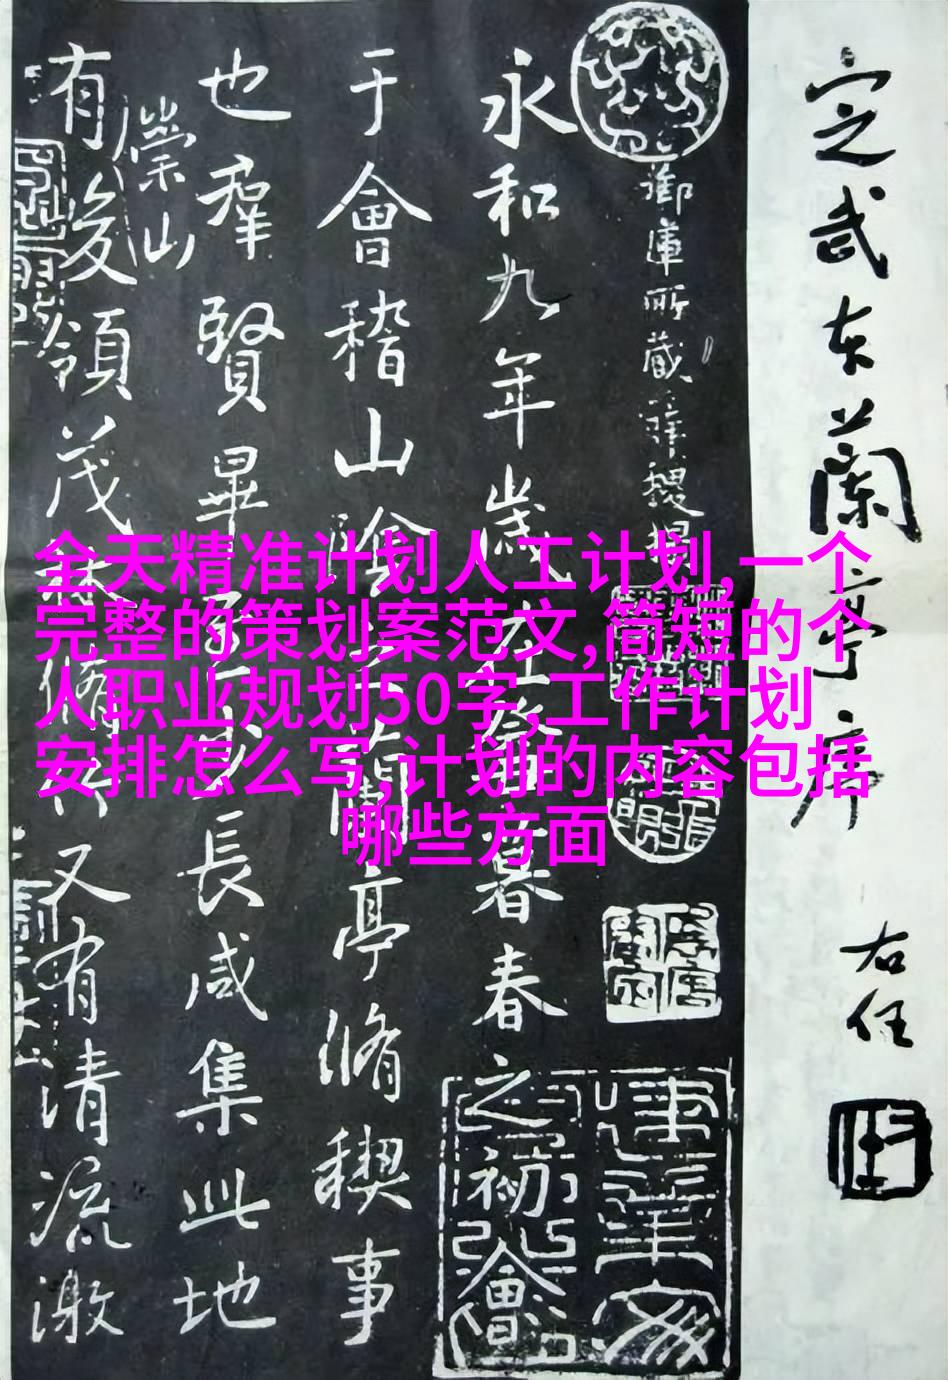 定武本蘭亭序
右任
御庫所藏
永和九年歲在癸丑暮春之初會
于會稽山陰之蘭亭脩稧事
也羣賢畢至少長咸集此地
崇山
有峻領茂林脩竹又有清流激
全天精准计划人工计划,一个
完整的策划案范文,简短的个
人职业规划50字,工作计划
安排怎么写,计划的内容包括
哪些方面